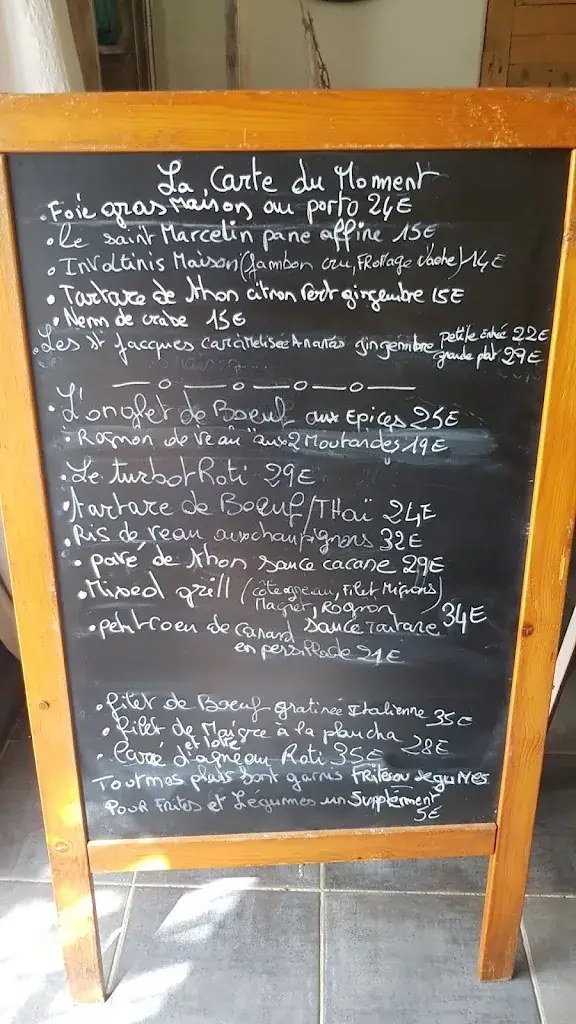 La Carte du Moment
• Foie gras Maison au porto 24E
• Le saint Marcelin pane affine 15E
• Involtinis Maison (Jambon cru, FRomage Vache) 14E
• Tartare de thon citron vert gingembre 15E
• Nem de crabe 15E
• Les St Jacques caramelisée Ananas gingembre petite Entrée 22E
grande plat 29E
• L'onglet de Boeuf aux Epices 25E
• Rognon de veau aux 2 Moutardes 19E
• Le turbot Roti 29E
• tartare de Boeuf/THaï 24E
• Ris de veau aux champignons 32E
• pavé de thon sauce cacane 29E
• Mixed grill (côte agneau, Filet Mignons
Magret, Rognon) 34E
• petit coeu de canard sauce tartare
en persillade 21E
• filet de Boeuf gratinée Italienne 35E
• filet de Maigre à la plancha 28E
et lotte
• Carré d'agneau Roti 35E
Tout mes plats sont garnis Frites ou legumes
POUR FRites et Légumes un Supplément
5E